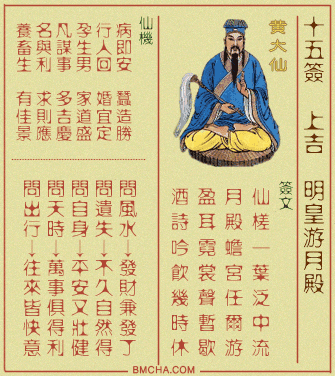 十五簽 上吉 明皇游月殿
黃大仙
簽文
仙槎一葉泛中流
月殿蟾宮任爾游
盈耳霓裳聲暫歇
酒詩吟飲幾時休
仙機
病即安 蠶造勝
行人回 婚宜定
孕生男 家道盛
凡謀事 多吉慶
名與利 求則應
養畜生 有佳景
問風水→發財兼發了
問遺失→不久自然得
問自身→平安又壯健
問天時→萬事俱得利
問出行→往來皆快意
BMCHA.COM